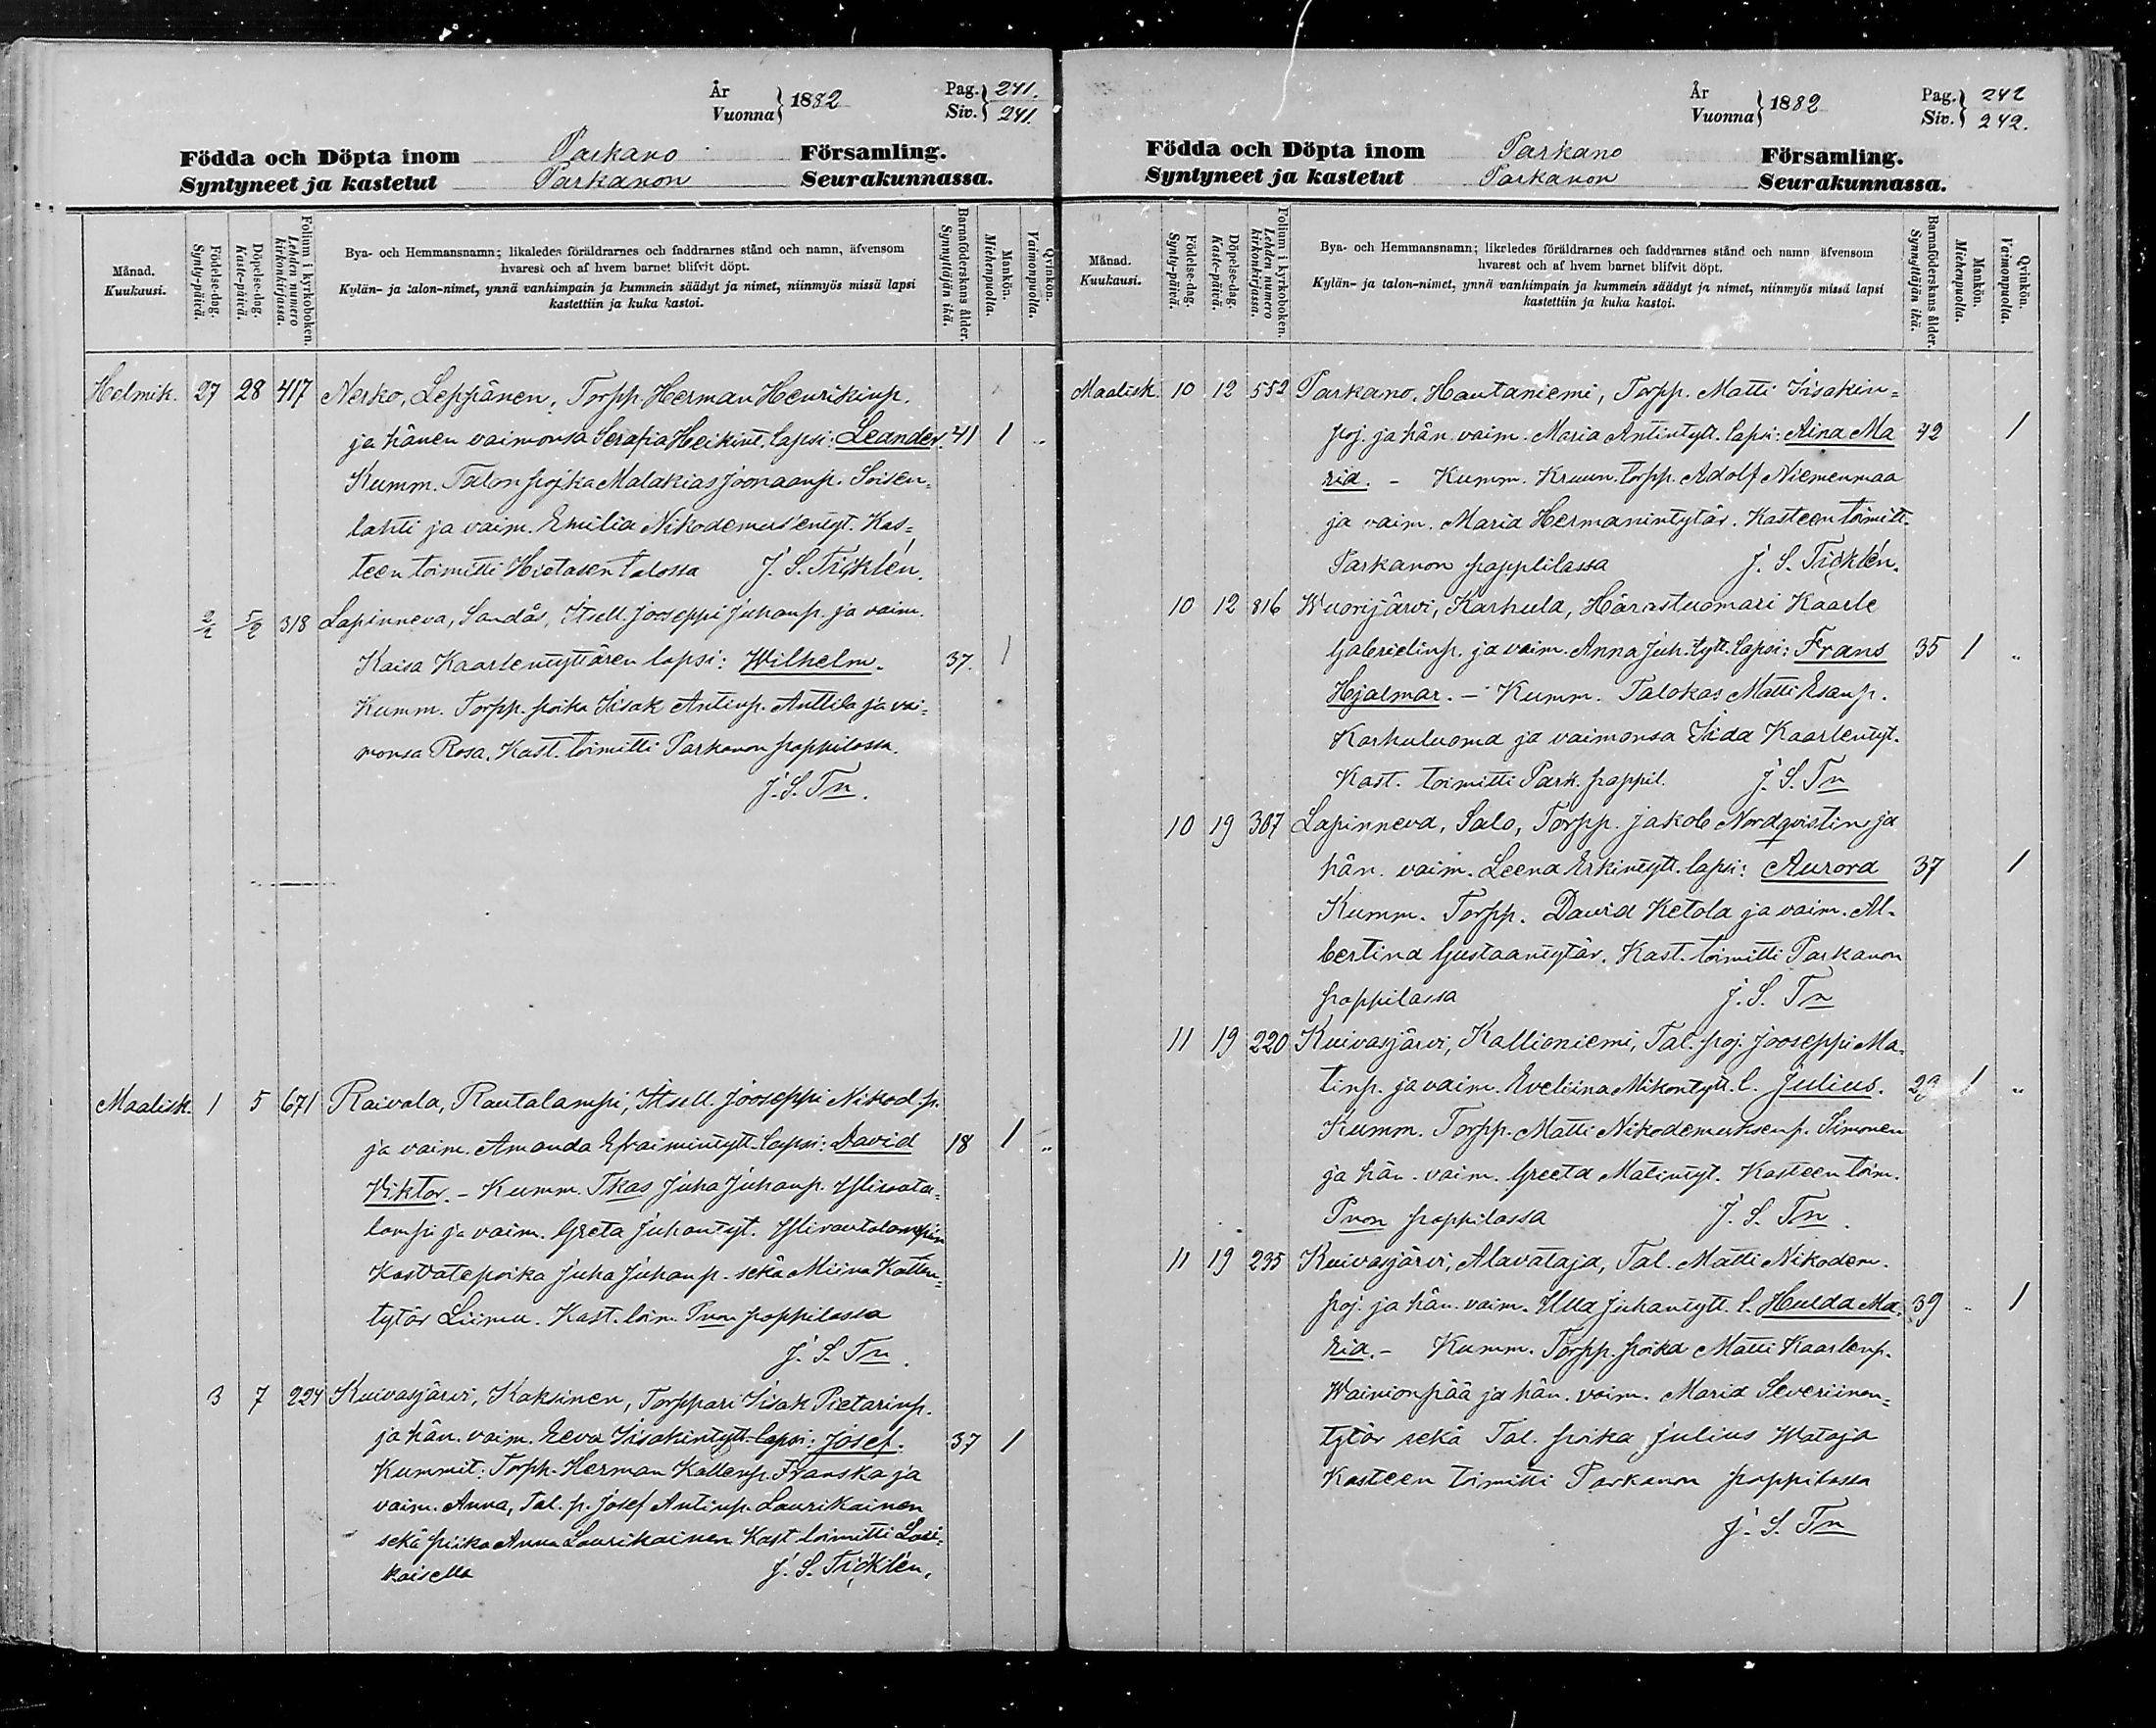 År
Vuonna } 1882
Pag. } 241.
Siv. } 241.
Födda och Döpta inom Parkano Församling.
Syntyneet ja kastetut Parkanon Seurakunnassa.
Månad.
Kuukausi.
Födelse-dag.
Synty-päivä.
Döpelse-dag.
Kaste-päivä.
Folium i kyrkoboken.
Lehden numero
kirkonkirjassa.
Bya- och Hemmansnamn; likaledes föräldrarnes och faddrarnes stånd och namn, äfvensom
hvarest och af hvem barnet blifvit döpt.
Kylän- ja talon-nimet, ynnä vanhimpain ja kummein säädyt ja nimet, niinmyös missä lapsi
kastettiin ja kuka kastoi.
Barnaföderskans ålder.
Synnyttäjän ikä.
Mankön.
Miehenpuolia.
Qvinkön.
Vaimonpuolia.
Helmik. 27 28 417 Nerko, Leppänen, Torpp. Herman Henrikinp.
ja hänen vaimonsa Serafia Heikint. lapsi: Leander. 41 1 "
Kumm. Talon pojka Malakias Joonaanp. Soisen-
lahti ja vaim. Emilia Nikodemus'entyt. Kas-
teen toimitti Hietasen talossa J. S. Ticklén.
2/2 5/2 318 Lapinneva, Sandås, Itsell. Jooseppi Juhanp. ja vaim.
Kaisa Kaarlentyttären lapsi: Wilhelm. 37. 1
Kumm. Torpp. poika Iisak Antinp. Anttila ja vai-
monsa Rosa. Kast. toimitti Parkanon pappilassa.
J. S. Tn.
Maalisk. 1 5 671 Raivala, Rautalampi, Itsell. Jooseppi Nikod. p.
ja vaim. Amanda Efraimintytt. lapsi: David 18 1 "
Viktor. - Kumm. Tkas Juha Juhanp. Yliraута-
lampi ja vaim. Greta Juhantyt. Ylirautalampin
Kasvatepoika Juha Juhanp. sekä Miina Kallen-
tytär Liimu. Kast. toim. Pnon pappilassa
J. S. Tn.
3 7 224 Kuivasjärvi, Kaksinen, Torppari Iisak Pietarinp.
ja hän. vaim. Eeva Iisakintytt. lapsi: Josef. 37 1
Kummit: Torpp. Herman Kallenp. Franska ja
vaim. Anna, Tal. p. Josef Antinp. Laurikainen
sekä piika Anna Laurikainen Kast. toimitti Lauri-
kaisella J. S. Ticklén.
År
Vuonna } 1882
Pag. } 242
Siv. } 242.
Födda och Döpta inom Parkano Församling.
Syntyneet ja kastetut Parkanon Seurakunnassa.
Månad.
Kuukausi.
Födelse-dag.
Synty-päivä.
Döpelse-dag.
Kaste-päivä.
Folium i kyrkoboken.
Lehden numero
kirkonkirjassa.
Bya- och Hemmansnamn; likaledes föräldrarnes och faddrarnes stånd och namn äfvensom
hvarest och af hvem barnet blifvit döpt.
Kylän- ja talon-nimet, ynnä vanhimpain ja kummein säädyt ja nimet, niinmyös missä lapsi
kastettiin ja kuka kastoi.
Barnaföderskans ålder.
Synnyttäjän ikä.
Mankön.
Miehenpuolia.
Qvinkön.
Vaimonpuolia.
Maalisk. 10 12 552 Parkano, Hautaniemi, Torpp. Matti Iisakin-
poj. ja hän. vaim. Maria Antintytt. lapsi: Aina Ma 42 1
ria. - Kumm. Kruun. torpp. Adolf Niemenmaa
ja vaim. Maria Hermanintytär. Kasteen toimitt.
Parkanon papplilassa J. S. Ticklén.
10 12 816 Wuorijärvi, Karhula, Härastuomari Kaarle
Gabrielinp. ja vaim. Anna Juh. tytt. lapsi: Frans 35 1 "
Hjalmar. - Kumm. Talokas Matti Esanp.
Karhuluoma ja vaimonsa Iida Kaarlentyt.
Kast. toimitti Park. pappil. J. S. Tn
10 19 307 Lapinneva, Salo, Torpp. Jakob Nordqvistin ja
hän. vaim. Leena Erkintytt. lapsi: Aurora 37 1
Kumm. Torpp. David Ketola ja vaim. Al-
bertina Gustaantytär. Kast. toimitti Parkanon
pappilassa J. S. Tn
11 19 220 Kuivasjärvi, Kallioniemi, Tal. poj. Jooseppi Ma-
tinp. ja vaim. Eveliina Mikontytt. l. Julius. 1 "
Kumm. Torpp. Matti Nikodemuksenp. Simonen
ja hän. vaim. Greeta Matintyt. Kasteen toim.
Pnon pappilassa J. S. Tn.
11 19 235 Kuivasjärvi, Alavataja, Tal. Matti Nikodem.
poj. ja hän. vaim. Ulla Juhantytt. l. Hulda Ma- 39 " 1
ria. - Kumm. Torpp. poika Matti Kaarlenp.
Wainionpää ja hän. vaim. Maria Severiinen-
tytär sekä Tal. poika Julius Wataja
Kasteen toimitti Parkanon pappilassa
J. S. Tn